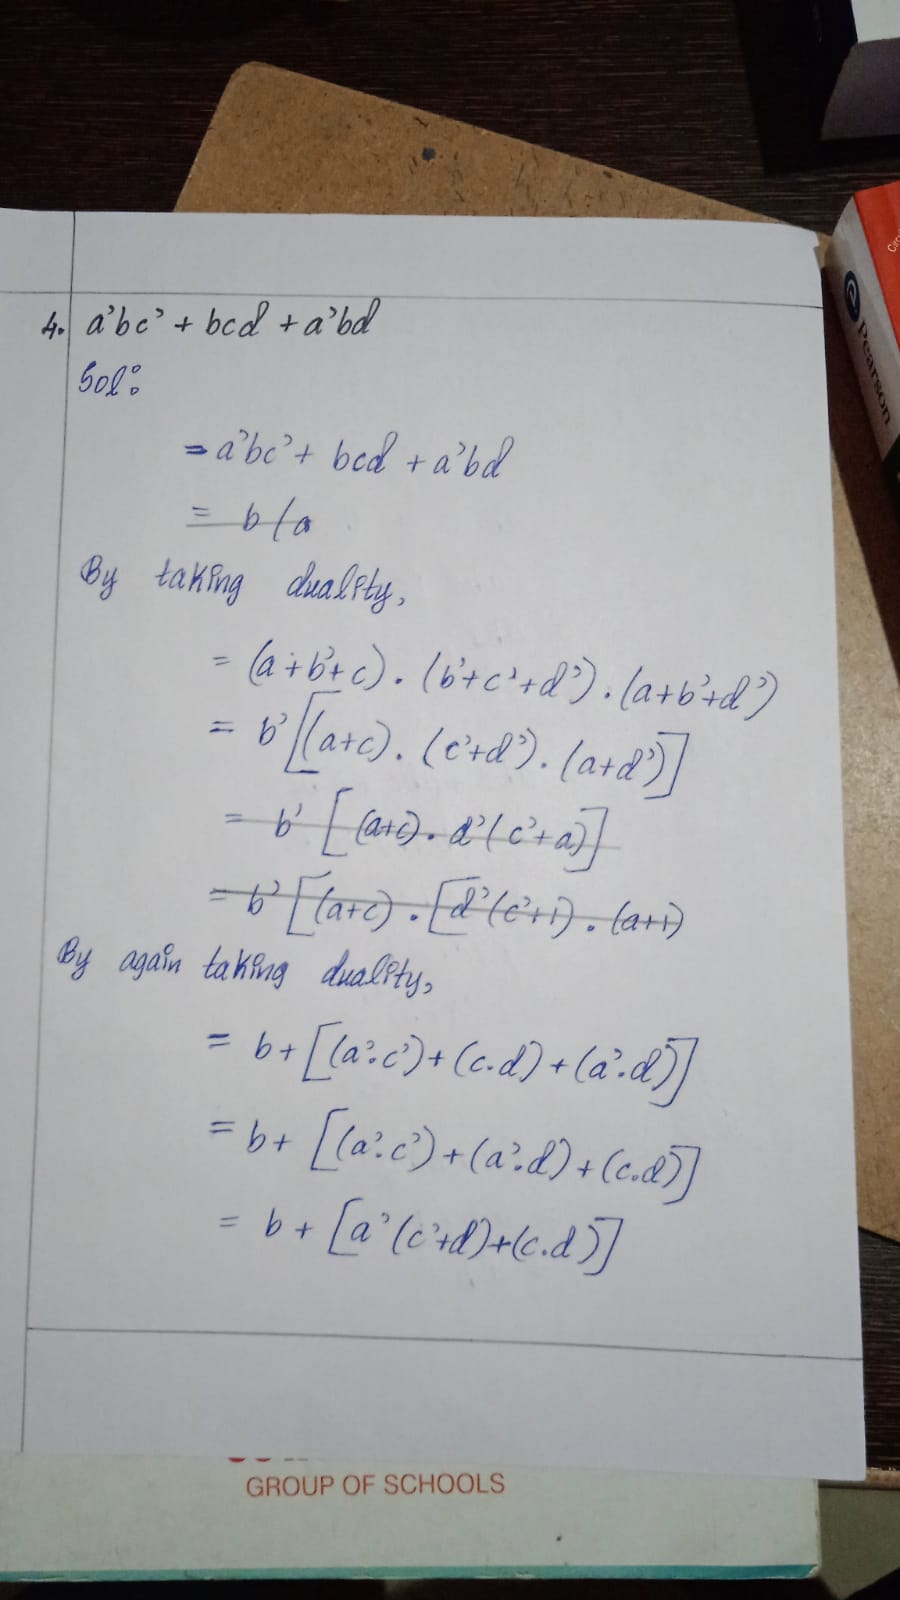 4. a'bc' + bcd + a'bd
Sol:
= a'bc' + bcd + a'bd
= b(a
By taking duality,
= (a+b'+c).(b'+c'+d').(a+b'+d')
= b'[(a+c).(c'+d').(a+d')]
= b'[(a+c).d'(c'+a)]
= b'[(a+c).[d'(c'+1).(a+1)
By again taking duality,
= b+[(a'.c')+(c.d)+(a'.d)]
= b+[(a'.c')+(a'.d)+(c.d)]
= b+[a'(c'+d)+(c.d)]
GROUP OF SCHOOLS
Pearson